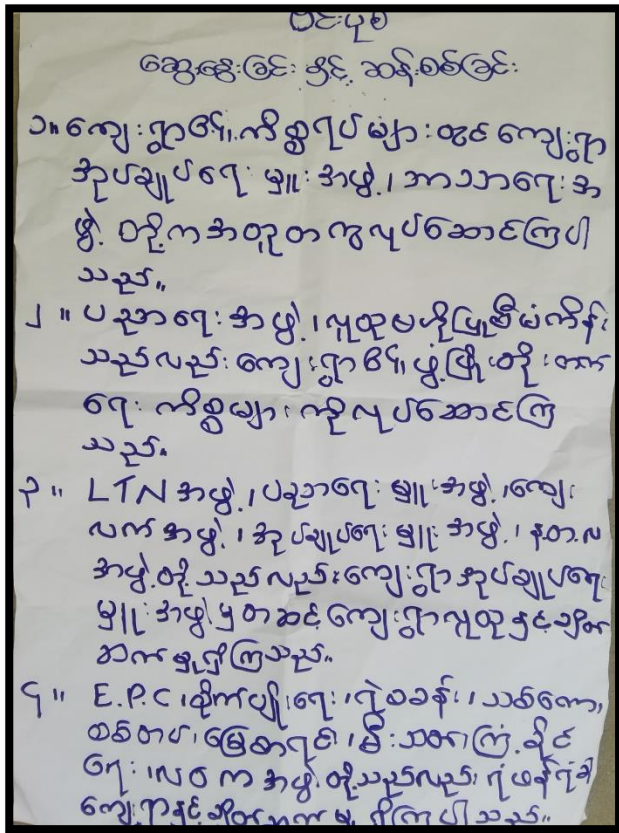 ဝင်းပုံစံ
ဆွေးနွေးခြင်း နှင့် ဆန်းစစ်ခြင်း
၁။ ကျေးရွာ၏ ကိစ္စရပ်များတွင် ကျေးရွာ
အုပ်ချုပ်ရေးမှူးအဖွဲ့၊ ဘာသာရေးအ
ဖွဲ့ တို့ကအတူတကွလုပ်ဆောင်ကြပါ
သည်။
၂။ ပညာရေးအဖွဲ့၊ လူထုမဟိုပြုစီမံကိန်း
သည်လည်း ကျေးရွာ၏ ဖွံ့ဖြိုးတိုးတက်
ရေး ကိစ္စများကိုလုပ်ဆောင်ကြ
သည်။
၃။ LTN အဖွဲ့၊ ပညာရေးမှူးအဖွဲ့၊ ကျေး
လက်အဖွဲ့၊ အုပ်ချုပ်ရေးမှူးအဖွဲ့၊ န.တ.လ
အဖွဲ့တို့သည်လည်းကျေးရွာအုပ်ချုပ်ရေး
မှူးအဖွဲ့မှတဆင့်ကျေးရွာလူထုနှင့်ချိတ်
ဆက်မှုရှိကြသည်။
၄။ E.P.C၊ စိုက်ပျိုးရေး၊ ရဲစခန်း၊ သစ်တော၊
စစ်တပ်၊ မြေစာရင်း၊ မီးသတ်၊ ကြံ့ခိုင်
ရေး၊ လဝက အဖွဲ့တို့သည်လည်း ရံဖန်ရံခါ
ကျေးရွာနှင့်ချိတ်ဆက်မှုရှိကြပါသည်။